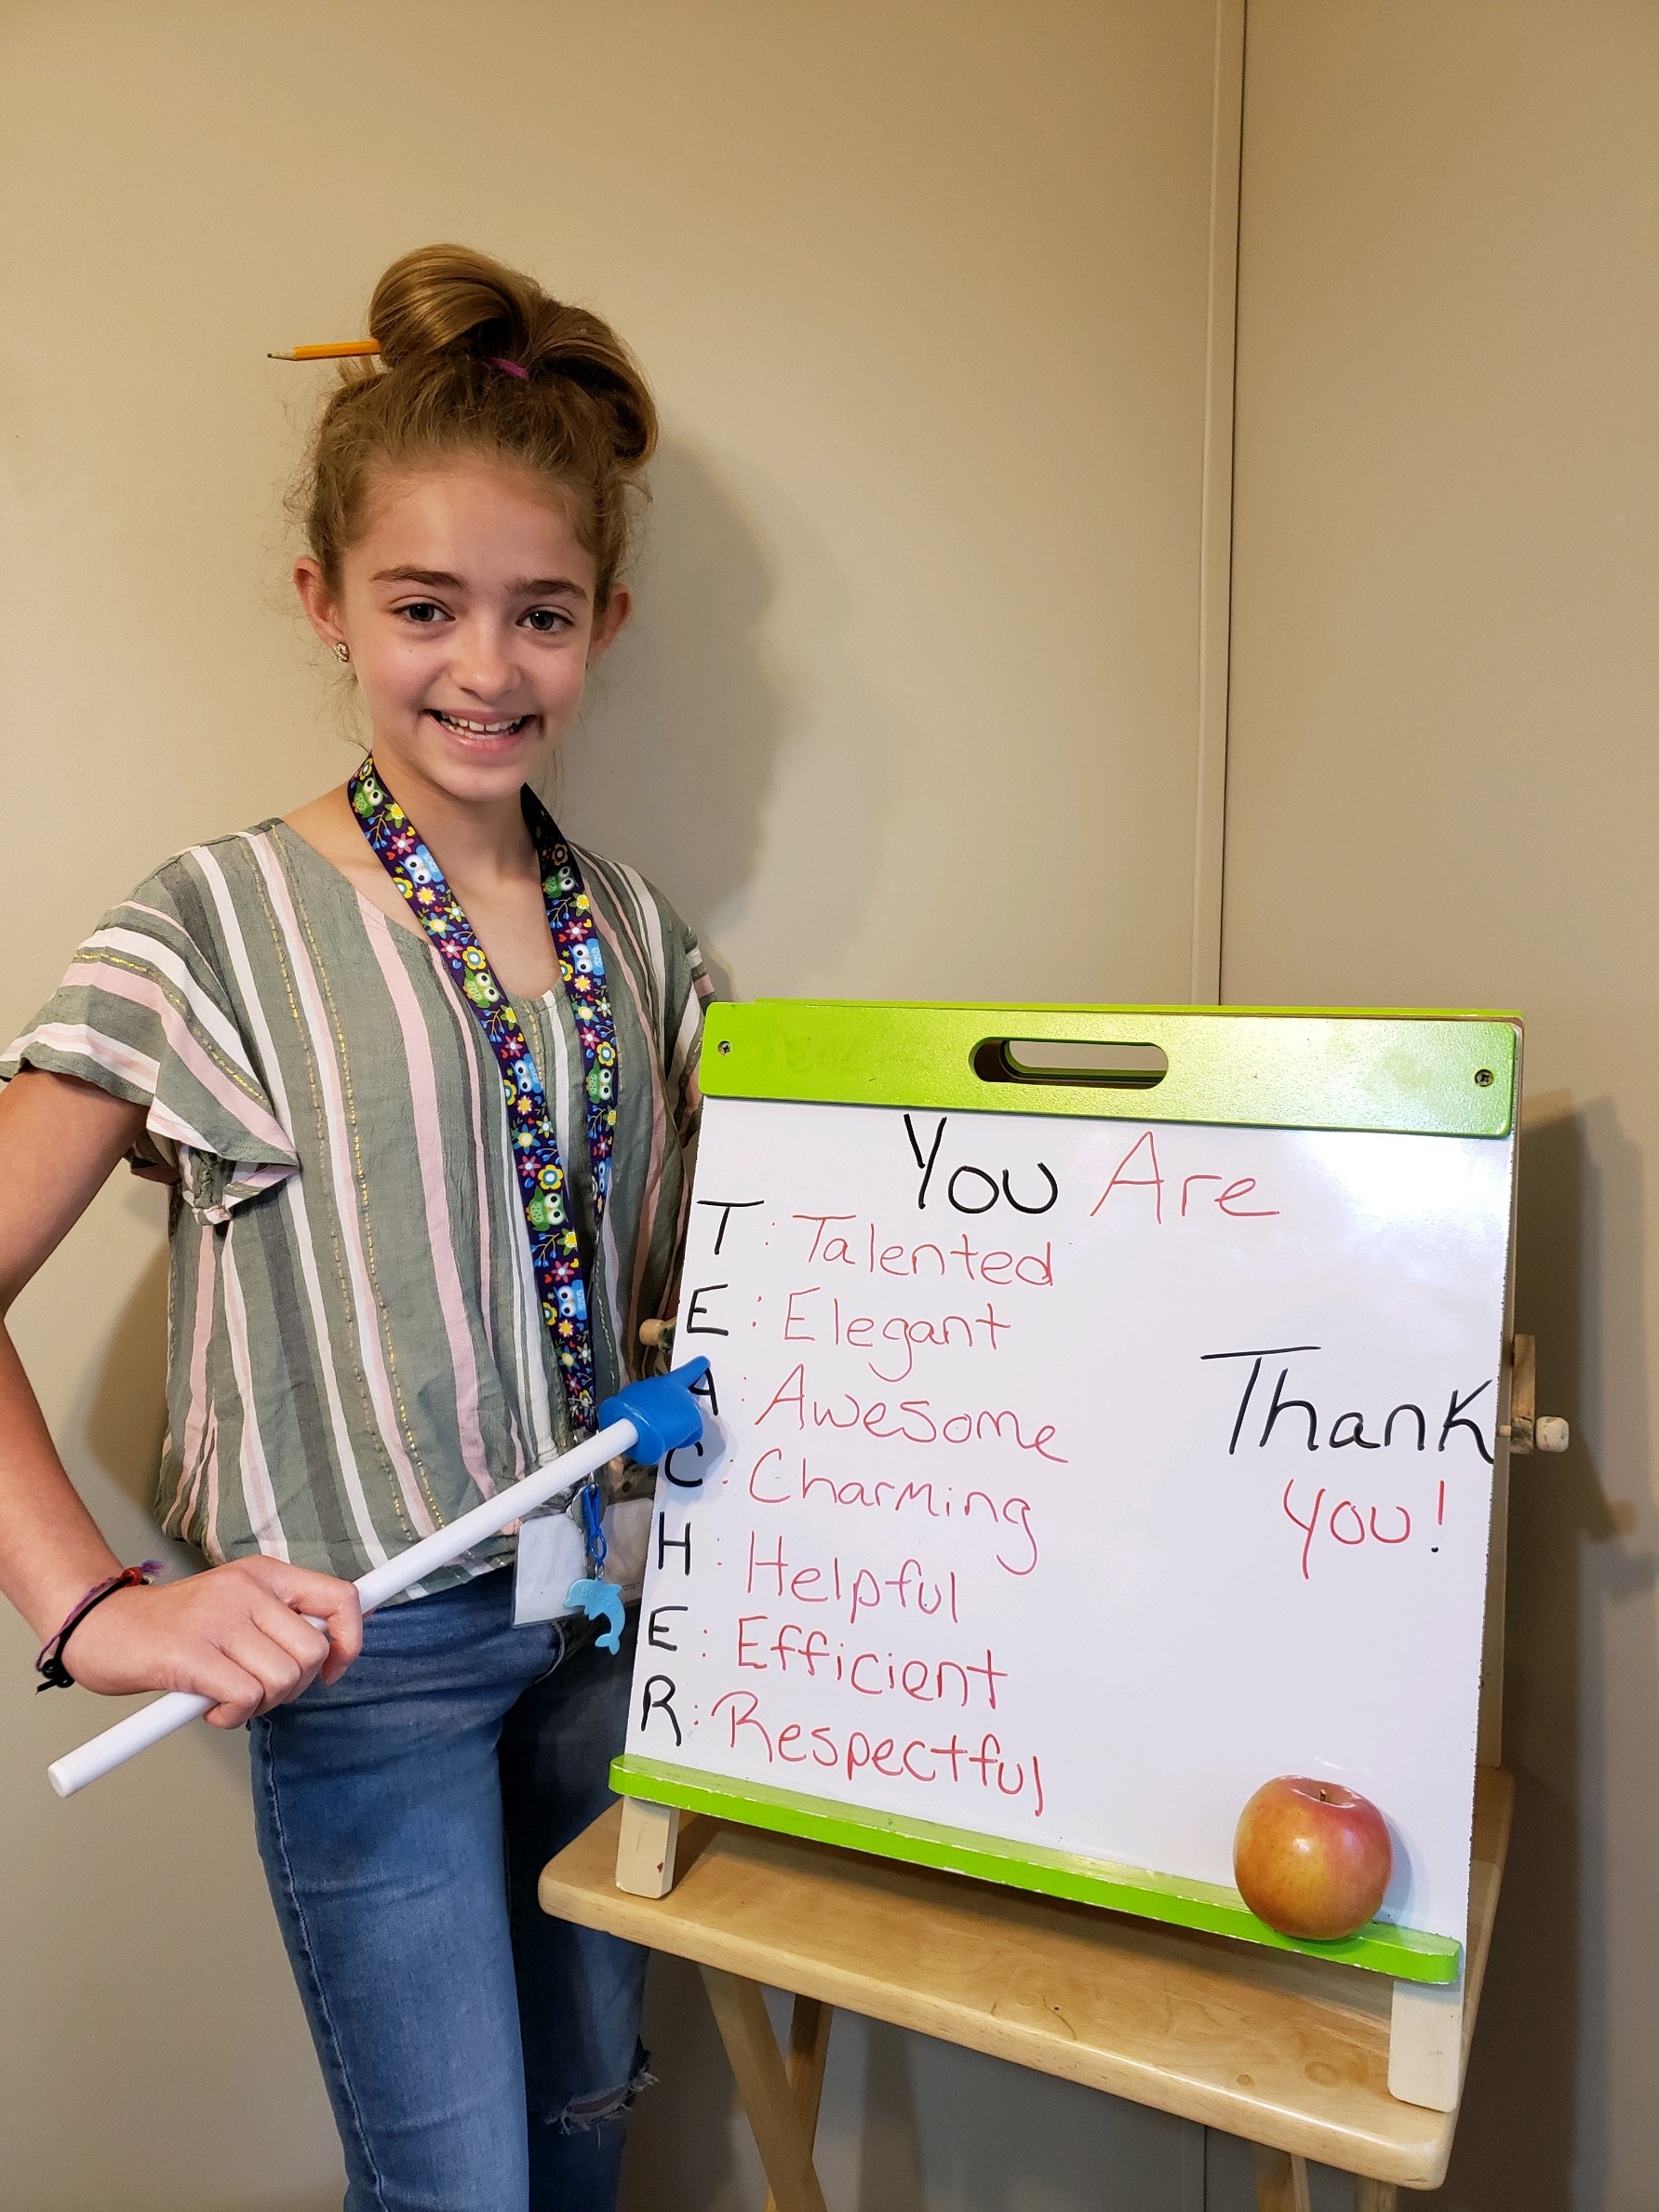 You Are
T: Talented
E: Elegant
A: Awesome
C: Charming
H: Helpful
E: Efficient
R: Respectful
Thank
you!